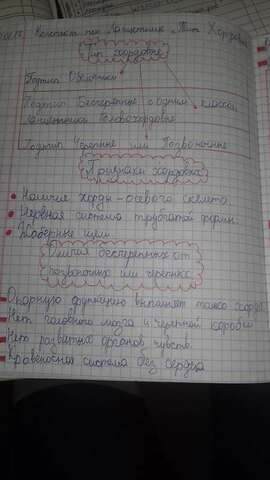 Конспект Ланцетник Тип Хордовые
Тип хордовые
Подтип Оболочники
Подтип Бесчерепные с одним классом
Головохордовые
Подтип Черепные или Позвоночные
Признаки хордовых
Наличие хорды - осевого скелета
Нервная система трубчатой формы
Жаберные щели
Отличия бесчерепных от
позвоночных или черепных
Опорную функцию выполняет только хорда
Нет головного мозга и черепной коробки
Нет развитых органов чувств.
Кровеносная система без сердца